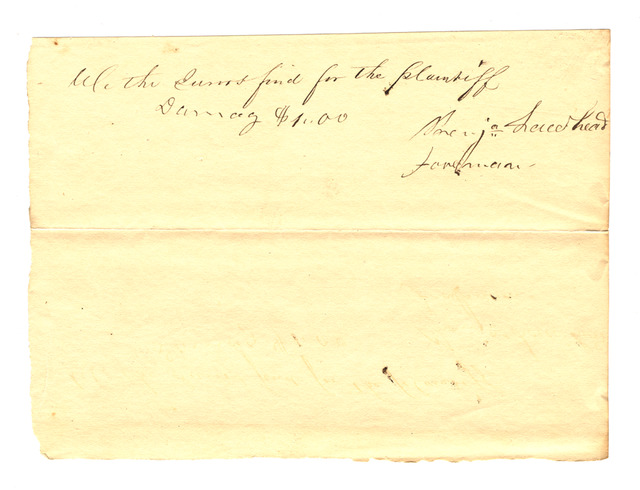 We the Jurors find for the plaintiff
Damag $1.00
Benja
foreman